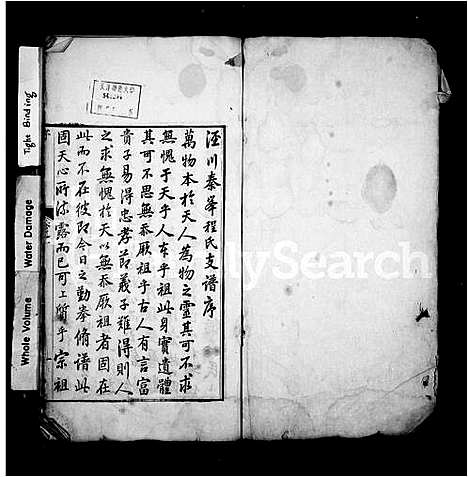 涇川秦峯程氏支譜序
萬物本於天人為物之靈其可不求
無愧于天乎人本乎祖此身實遺體
其可不思無忝厥祖乎古人有言富
貴子易得忠孝節義子難得則人
之求無愧於天以無忝厥祖者固在
此而不在彼即今日之勤奉脩譜此
固天心所流露而已可上質乎宗祖
Tight Binding
Water Damage
Whole Volume
lySearch